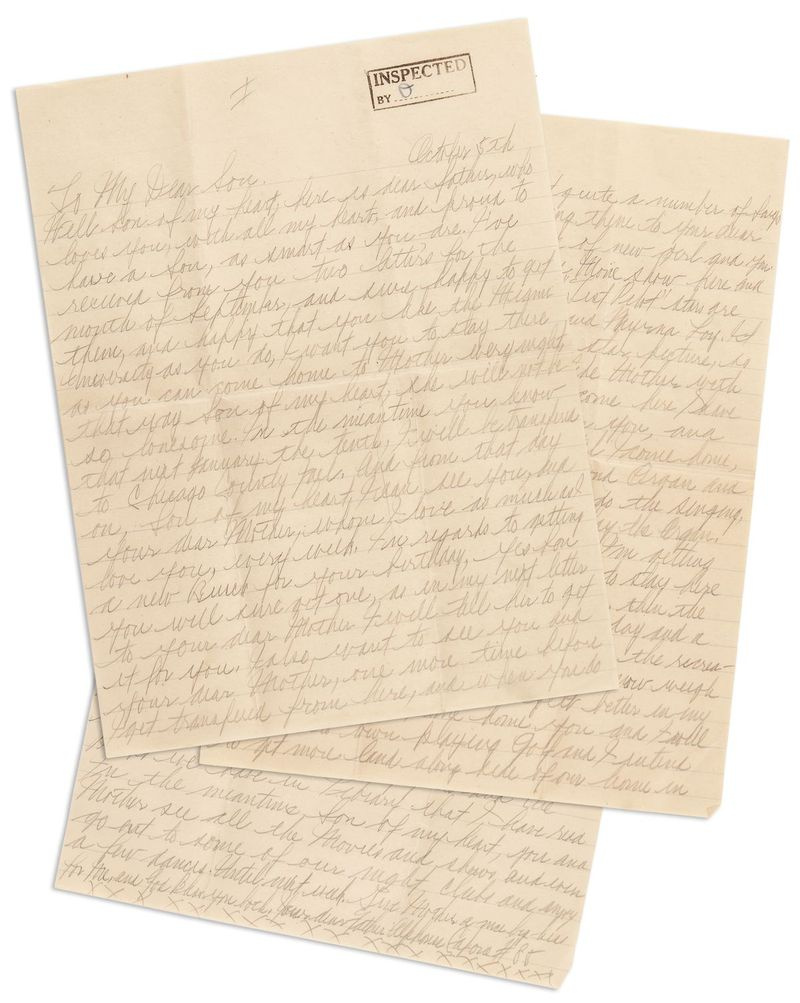 I
INSPECTED
BY
October 5th
To My Dear Son.
Well son of my heart, here is dear father, who
loves you, with all my heart, and proud to
have a Son, as smart as you are. I've
received from you two letters for the
month of September, and sure happy to get
them, and happy that you like the
as you do, I want you to stay there
as you can come home to Mother every night,
that way Son of my heart, she will not be
so lonesome. In the meantime you know
that next January the tenth, I will be transfered
to Chicago County jail. And from that day
on, Son of my heart, I can see you, and
your dear Mother, whom I love as much as I
love you, every week. In regards to getting
a new Buick for your birthday, yes son
you will sure get one, as in my next letter
to your dear Mother I will tell her to get
it for you. I also want to see you and
your dear Mother, one more time before
I get transfered from here, and when you do
quite a number of
to your dear
of new and you
Movie show here and
stars are
and Myrna Loy. It
star picture, so
Mother with
come here, I have
you, and
I come home,
Organ and
do the singing,
the Organ.
I'm getting
to stay here
than the
day and a
the recrea-
now weigh
better in my
home you and I will
own playing Golf and I intend
get more land along side of our home in
have in that I have read
In the meantime, Son of my heart, you and
Mother see all the Movies and shows, and even
go out to some of our night clubs and enjoy
a few dances. Until next week. Give Mother a kiss
for me, and God bless you both, your dear father Alphonse Capone # 85
XXXXXXXXXXXXXXXXXXXX